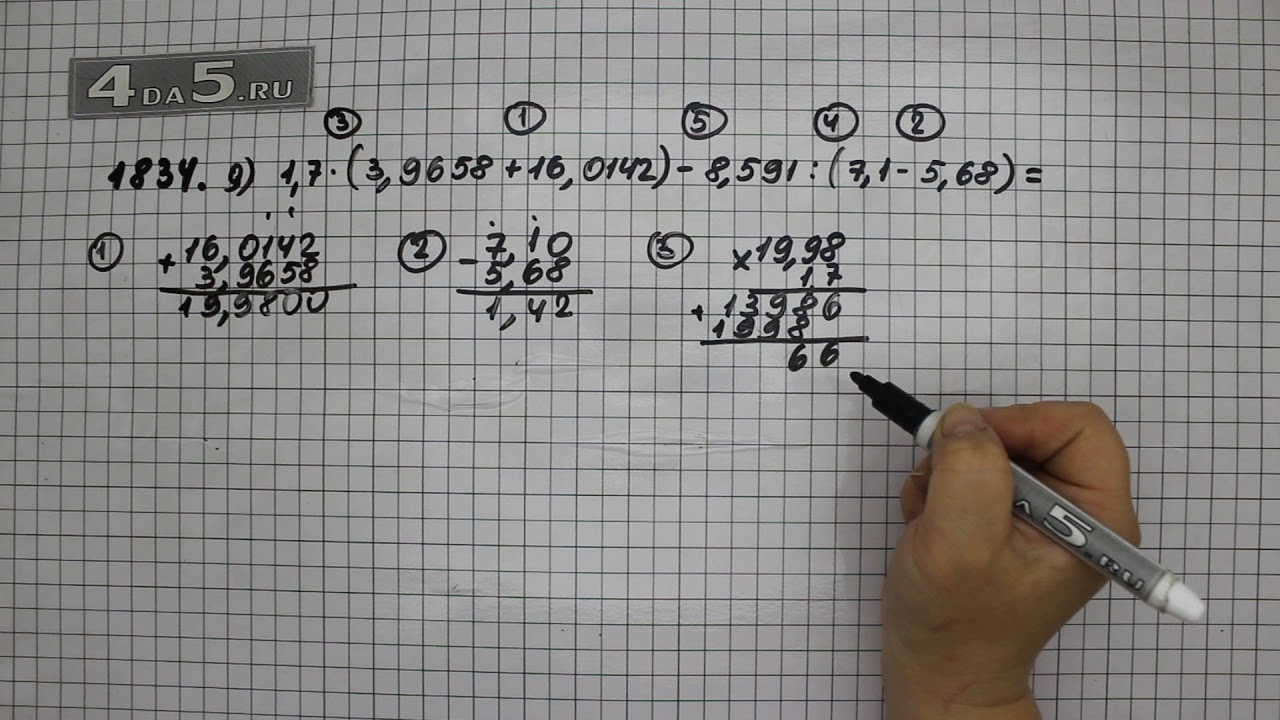 4DA5.RU
③ ① ⑤ ④ ②
1834. g) 1,7·(3,9658+16,0142)-8,591:(7,1-5,68)=
① +16,0142
3,9658
19,9800
② -7,10
5,68
1,42
③ ×19,98
1,7
+13986
1998
66
5.RU